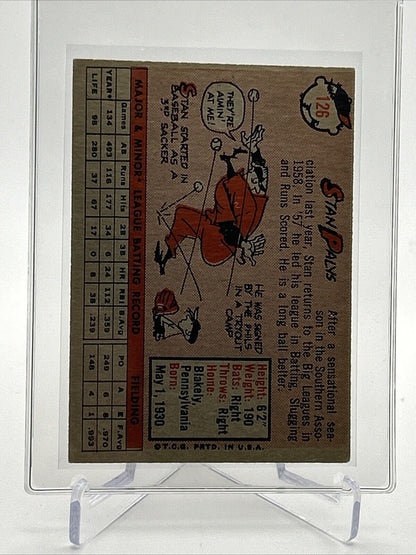 126
STAN PALYS
After a sensational sea-
son in the Southern Asso-
ciation last year, Stan returns to the Big Leagues in
1958. In '57, he led his league in Batting, Slugging
and Runs Scored. He is a long ball belter.
THEY'RE
AIMIN'
AT ME!
STAN STARTED IN
BASEBALL AS A
3RD SACKER
HE WAS SIGNED
BY THE PHILS
IN A TRYOUT
CAMP
Height: 6'2"
Weight: 190
Bats: Right
Throws: Right
Home:
Blakely
Pennsylvania
Born:
May 1, 1930
MAJOR & MINOR* LEAGUE BATTING RECORD FIELDING
Games AB Runs Hits 2B 3B HR RBI B.Avg PO A E F.Avg
YEAR* 134 493 116 177 34 6 24 116 .359 249 6 8 .970
LIFE 98 280 37 67 17 0 8 38 .239 148 4 1 .993
© T.C.G. PRTD. IN U.S.A.